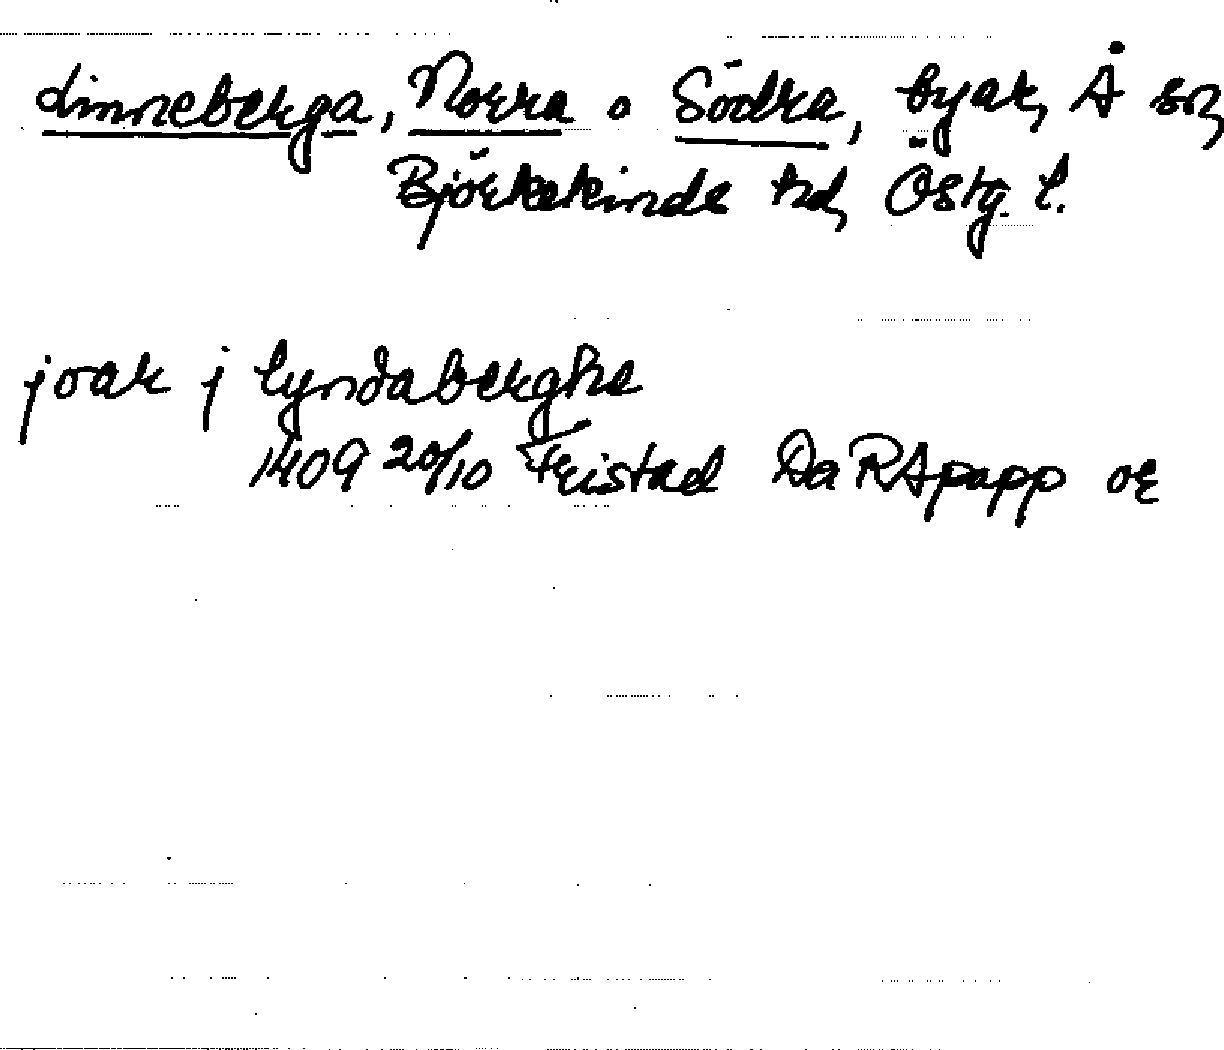 Linneberga, Norra o Södra, byar, Å sn,
Björkekinds hd, Östg. l.
joar j lyndaberghe
1409 20/10 Fristad Da RApapp or